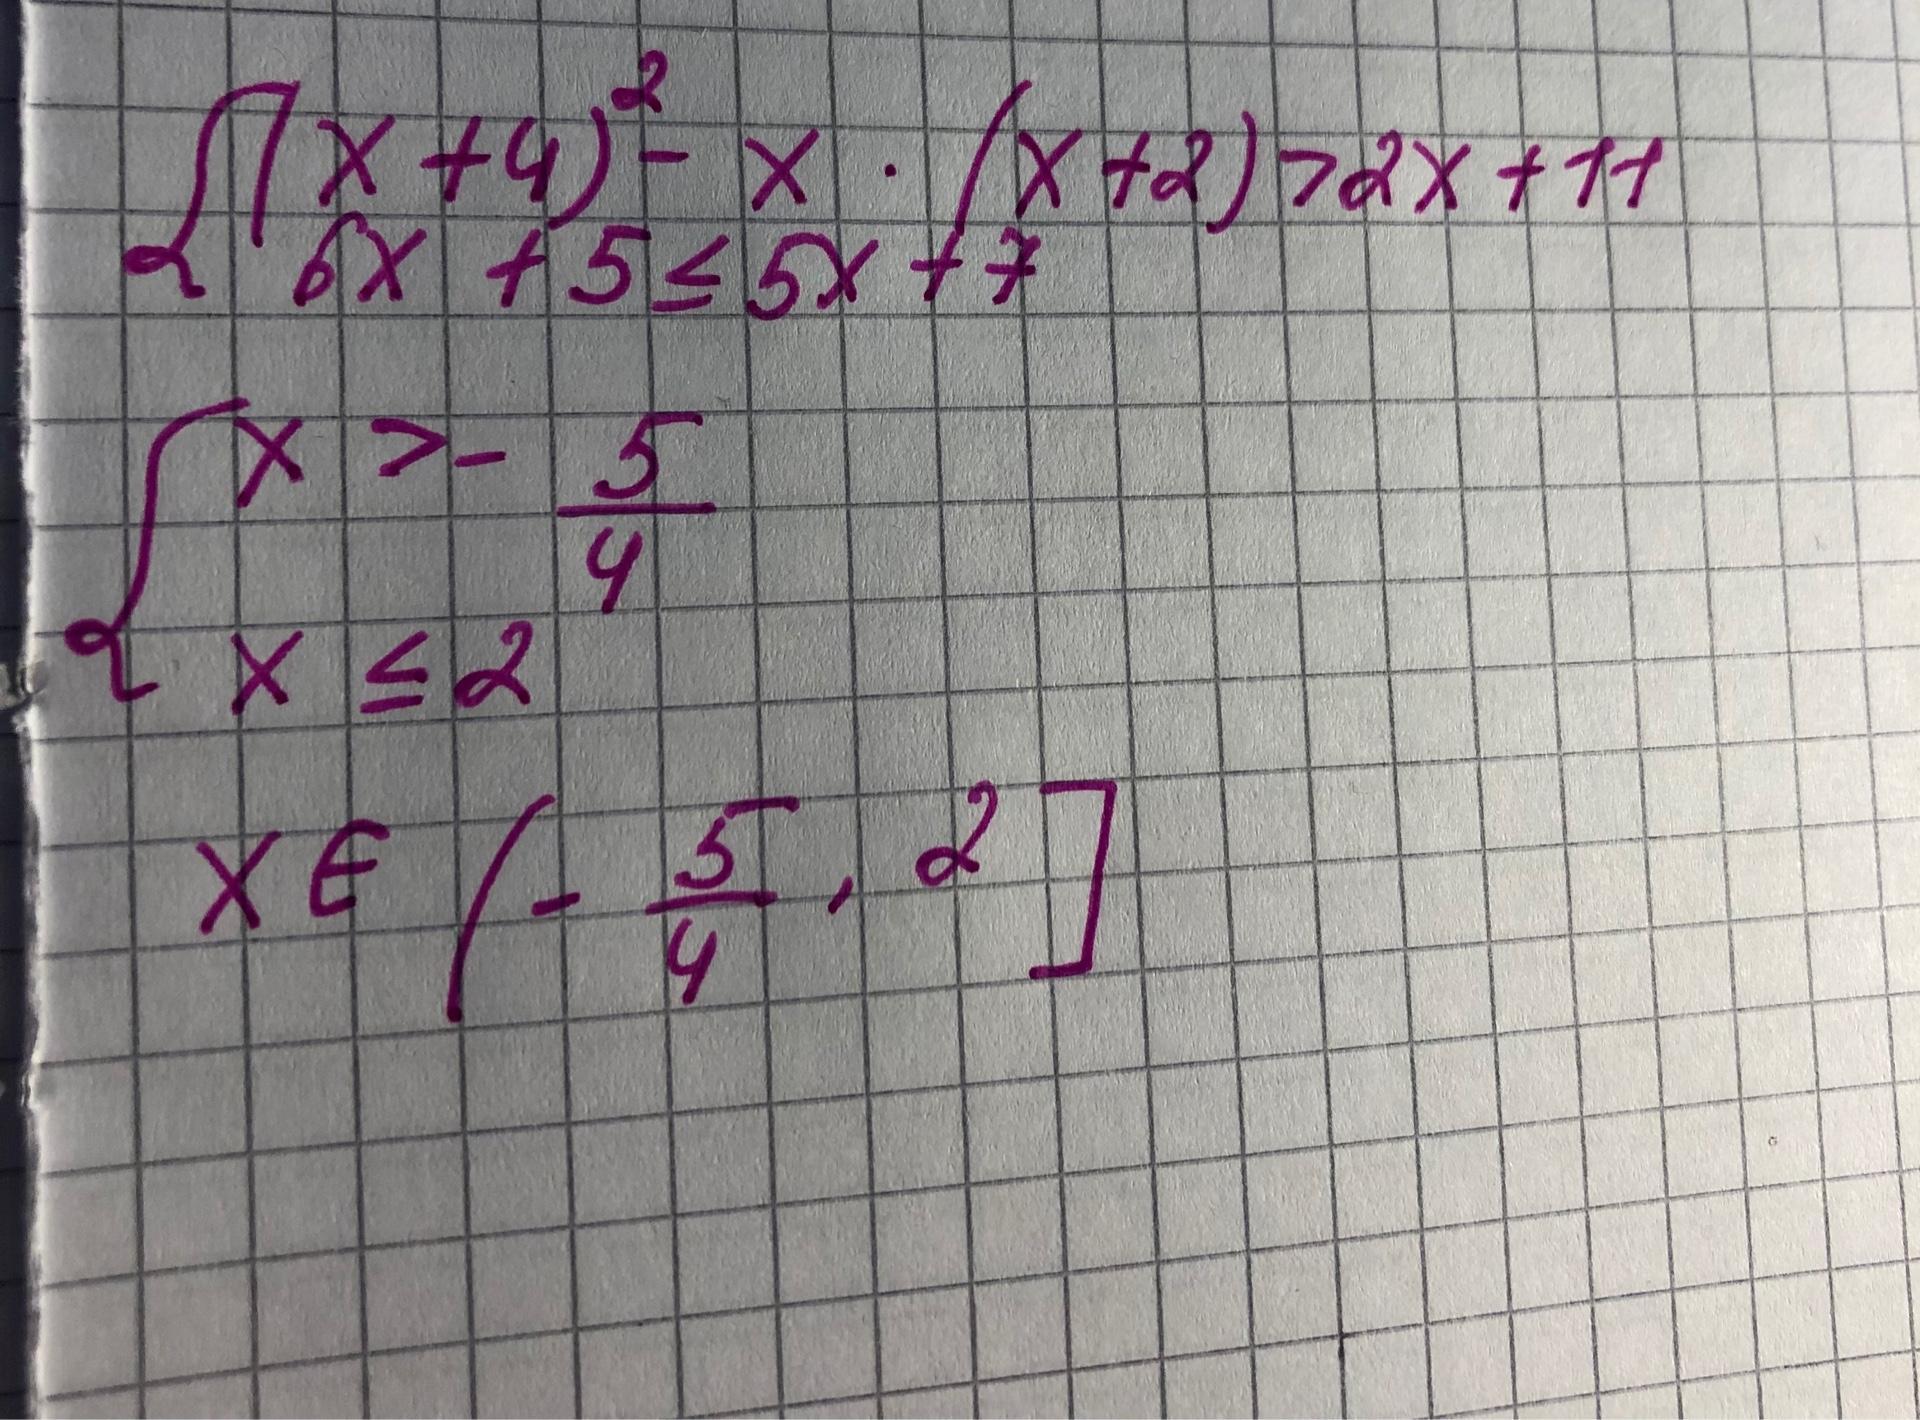 {(x+4)² - x · (x+2) > 2x + 11
6x + 5 ≤ 5x + 7
{x > - 5/4
x ≤ 2
x ∈ (- 5/4 , 2]